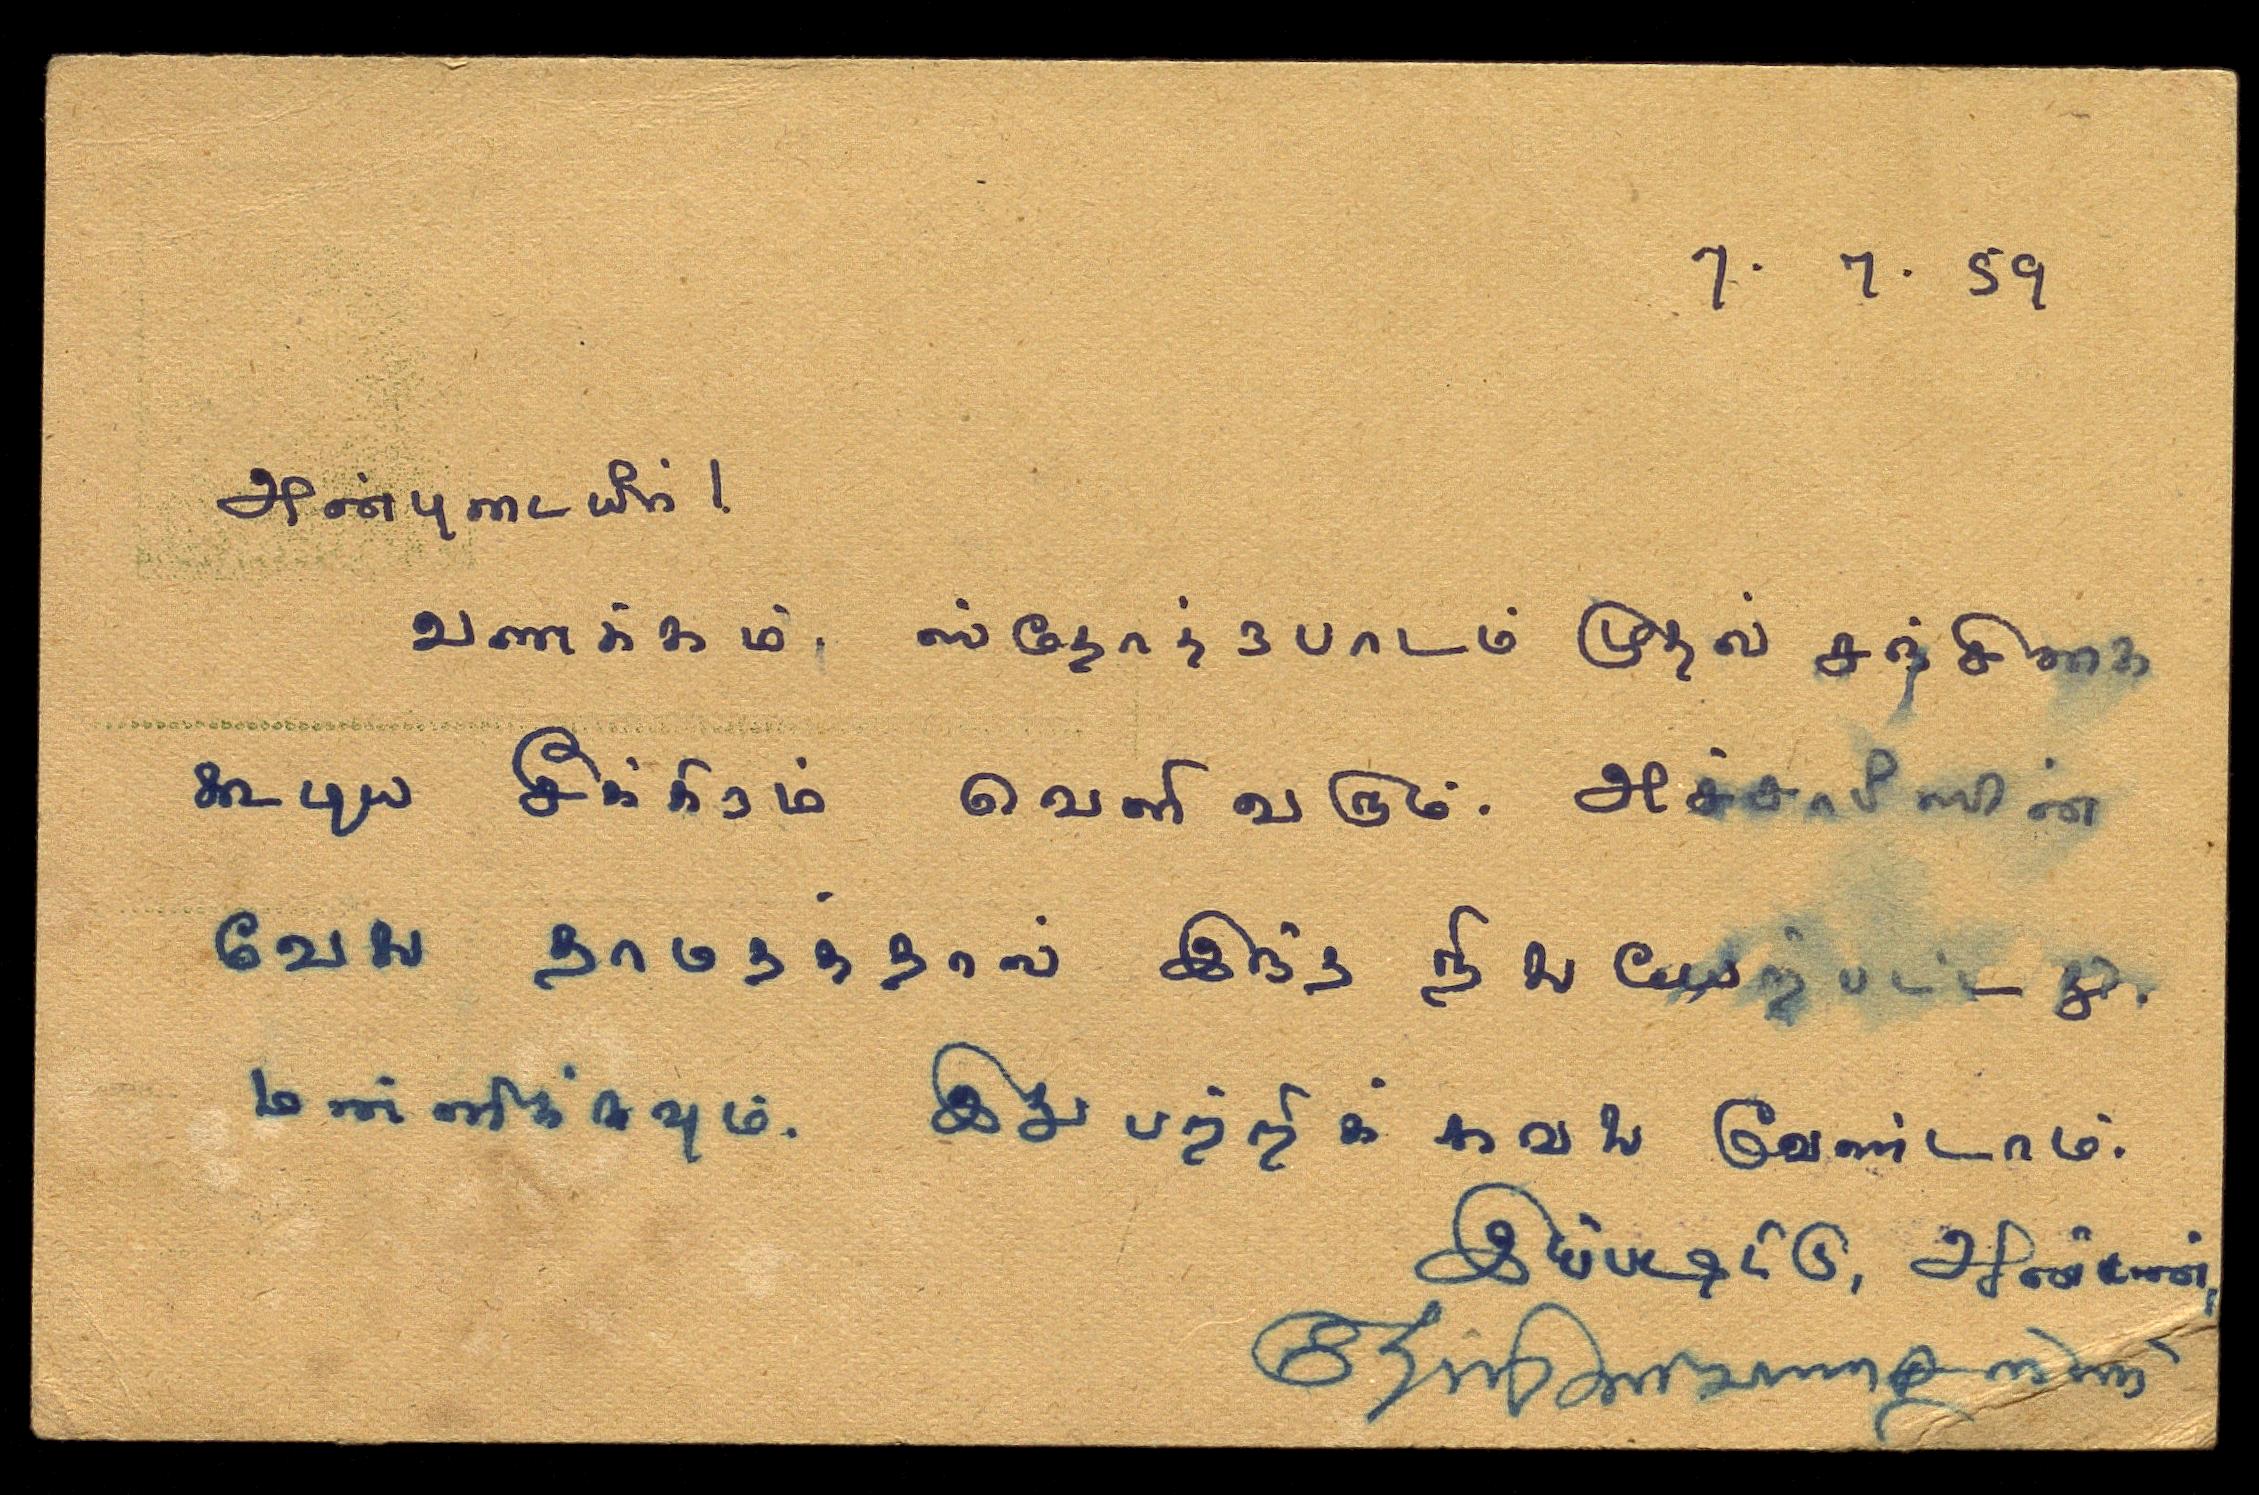 7. 7. 59
அன்புடையீர்!
வணக்கம். ஸ்தோத்ரபாடம் முதல் சஞ்சிகை
கூடிய சீக்கிரம் வெளிவரும். அச்சாபீஸின்
வேலை தாமதத்தால் இந்த நிலை யேற்பட்டது.
மன்னிக்கவும். இதுபற்றிக் கவலை வேண்டாம்.
இப்படிக்கு, அன்பன்,